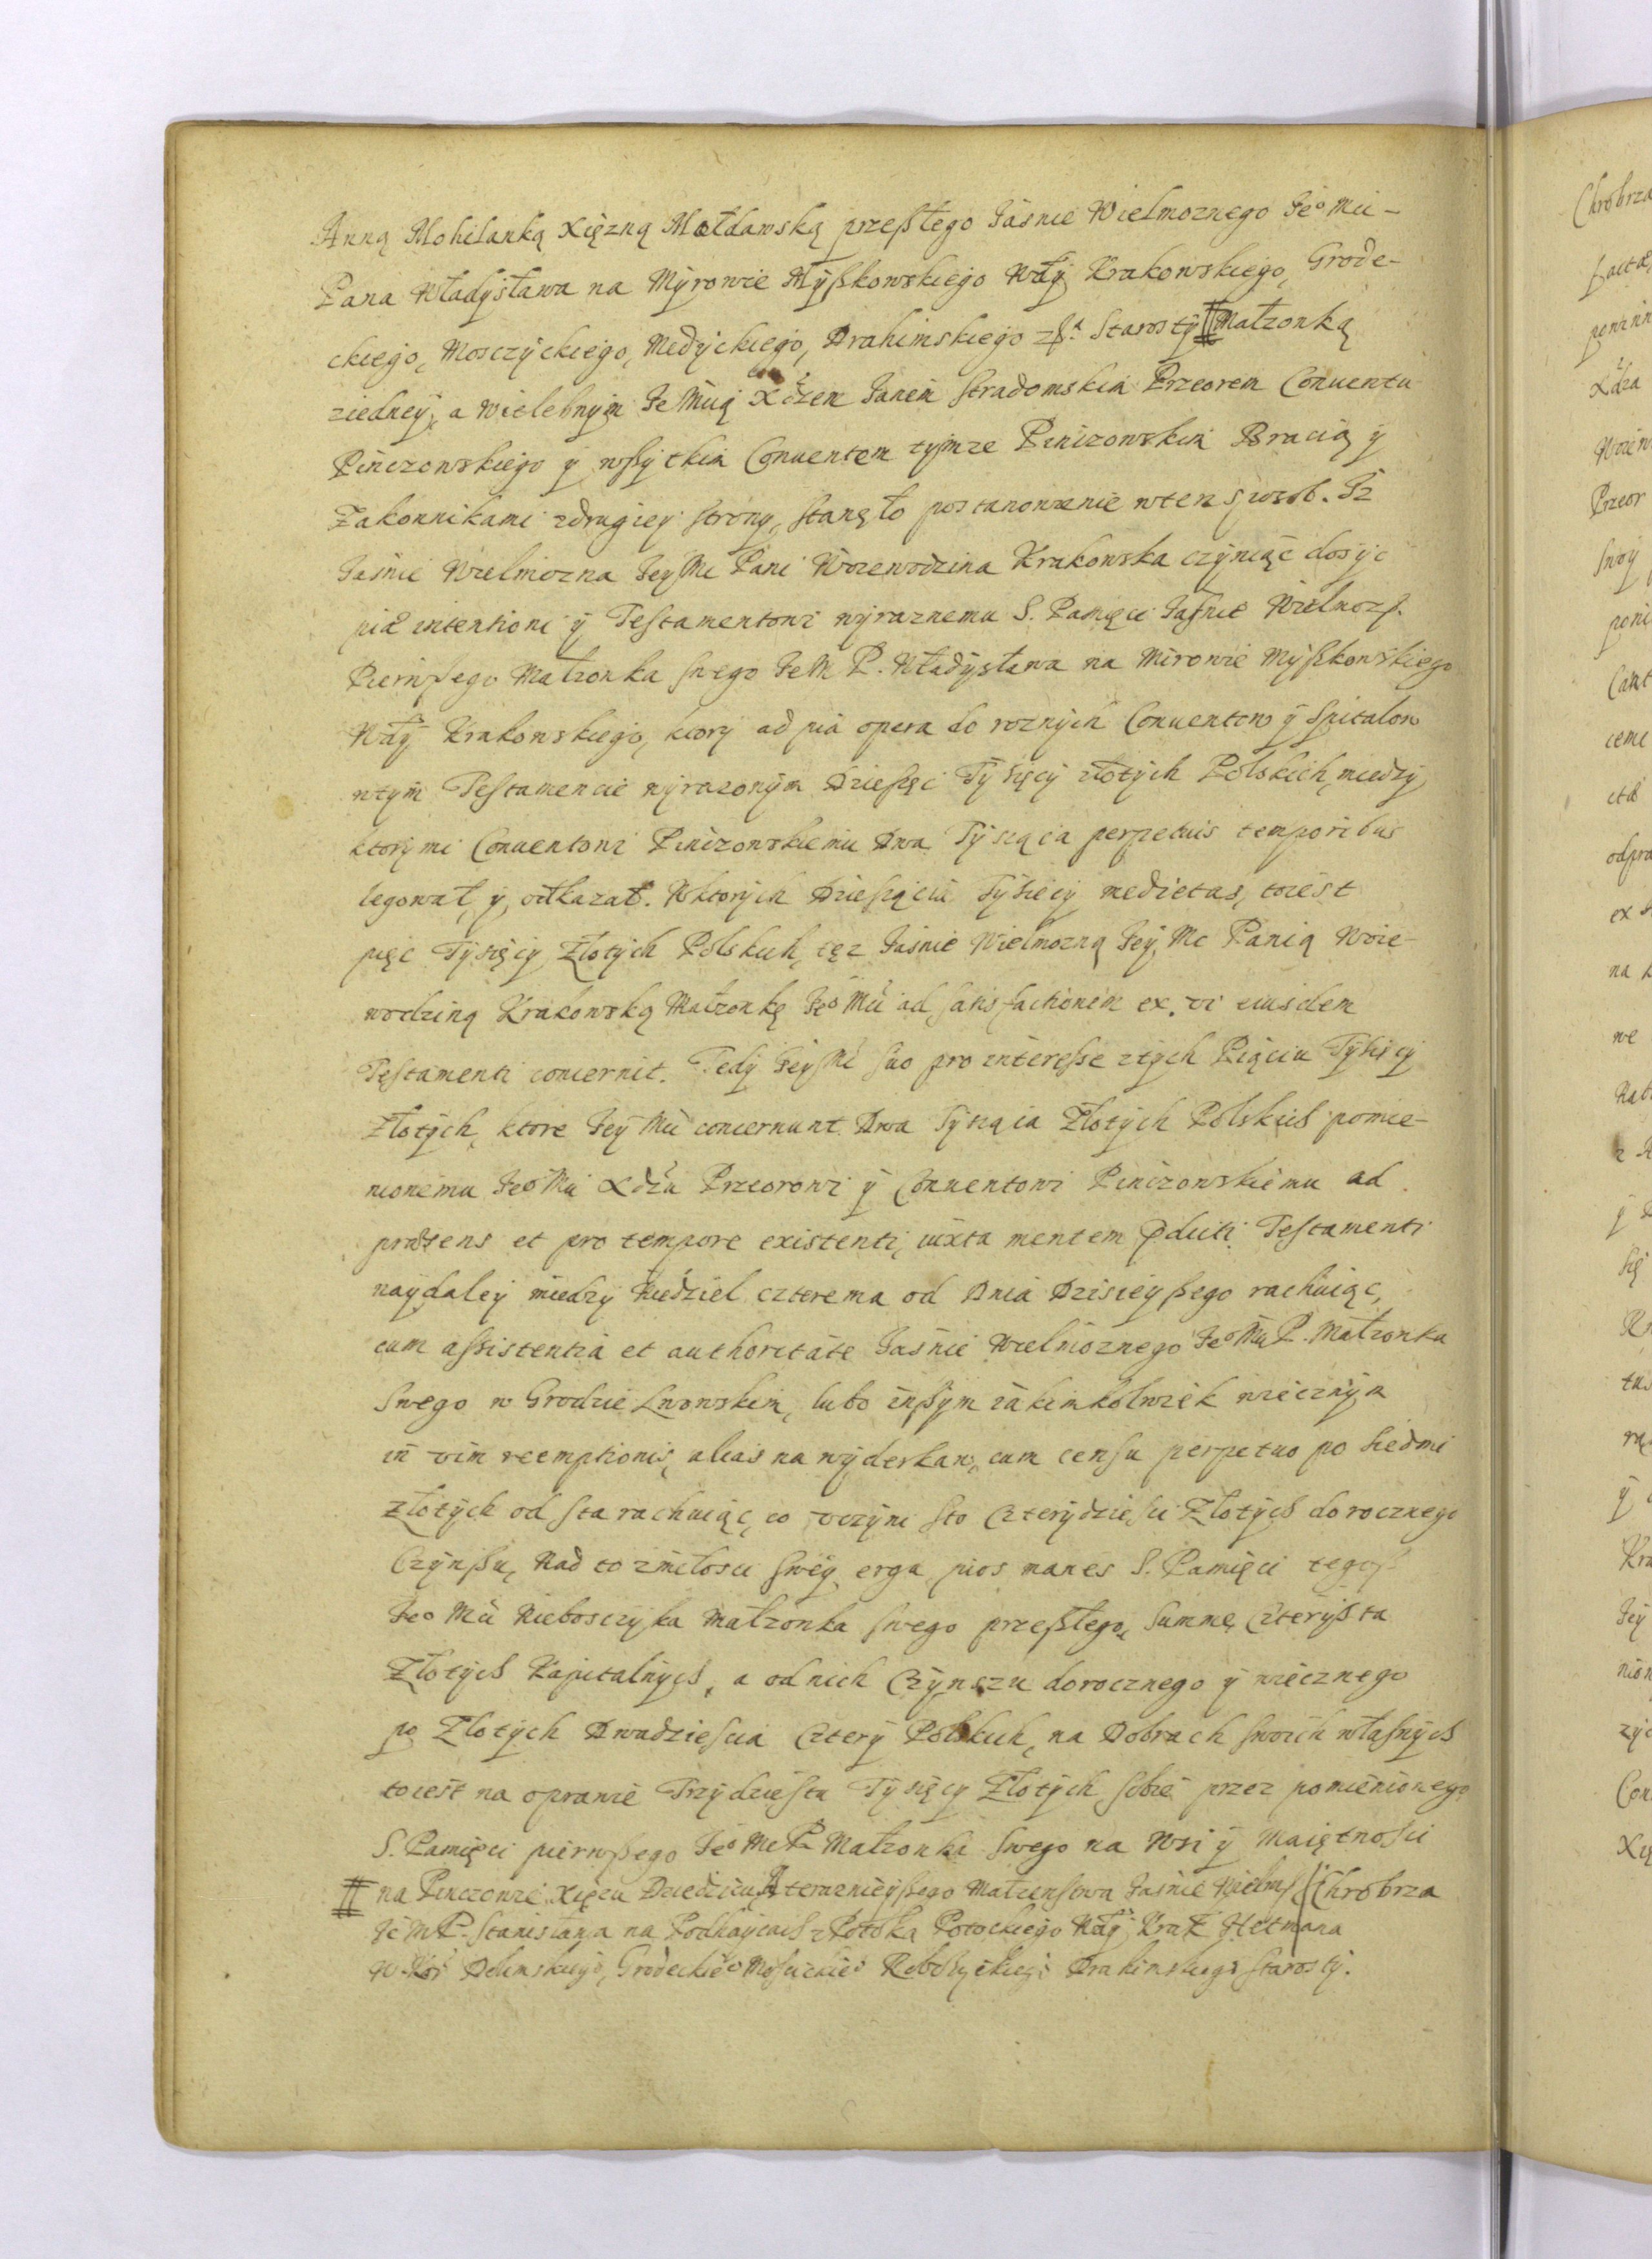 Anną Mohilanką Xiężną Mołdawską przeszłego Jaśnie Wielmoznego Jeo Mci-
Pana Władysława na Myrowie Myszkowskiego Wdy Krakowskiego, Grode-
ckiego, Mosczyckiego, Medyckiego, Drahimskiego Starosty Małzonką
ziedney, a wielebnym Je Mcią Xdzem Janem Stradomskim Przeorem Conuentu
Pinczowskiego y wszytkim Conuentem tymze Pinczowskim Bracią y
Zakonnikami zdrugiey strony, stanęło postanowienie wten sposob. Iz
Jaśnie Wielmozna Jey Mc Pani Woiewodzina Krakowska czyniąc dosyc
piæ intentioni y Testamentowi wyraznemu S. Pamięci Jaśnie Wielmoz.
Pierwszego Małzonka swego Je M P. Władysława na Mirowie Myszkowskiego
Wdy Krakowskiego, ktory ad pia opera do roznych Conuentow y Spitalow
wtym Testamencie wyrazonym Dziesięć Tysięcy złotych Polskich, między
ktorymi Conuentowi Pinczowskiemu Dwa Tysiąca perpetuis temporibus
legował, y, odkazał. Wktorych Dziesiąciu Tysięcy medietas, toiest
pięc Tysięcy Złotych Polskich, tęz Jaśnie Wielmozną Jey Mc Panią Woie-
wodziną Krakowską Małzonkę Jeo Mci ad satisfactionem ex vi eiusdem
Testamenti concernit. Tedy Jey Mc suo pro interesse ztych Pięciu Tysięcy
Złotych, ktore Jey Mci concernunt Dwa Tysiąca Złotych Polskich pomie-
nionemu Jeo Mci Xdzu Przeorowi y Conuentowi Pinczowskiemu ad
præsens et pro tempore existenti, iuxta mentem prædicti Testamenti
naydaley miedzy Niedziel czterema od Dnia Dzisieyszego rachuiąc,
cum assistentia et authoritate Jaśnie Wielmoznego Jeo Mci P. Małzonka
Swego w Grodzie Lwowskim, lubo inszym iakimkolwiek wiecznym
in vim reemptionis, alias na wyderkaw, cum censu perpetuo po siedmi
złotych od sta rachuiąc, co vczyni sto Czterydziesci Złotych dorocznego
Czynszu, Nad to zmiłosci swey erga pios manes S. Pamięci tegosz
Jeo Mci Nieboszczyka Małzonka swego przeszłego, Summę Czterysta
Złotych Kapitalnych, a od nich Czynszu dorocznego y wiecznego
po Złotych Dwadziescia Cztery Polskich, na Dobrach swoich własnych
toiest na oprawie Trzydziestu Tysięcy Złotych sobie przez pomienionego
S. Pamięci pierwszego Jeo Mc P. Małzonka swego na Wsi y Maiętności
na Pinczowie Xięzu Dziedzicu teraznieyszego Małzenstwa Jaśnie Wielm Chrobrza
Je M P. Stanisława na Podhaycach z Potoka Potockiego Wdy Krak Hetmana
W. Kor Delinskiego, Grodeckieo Mościckieo Drahimskiego Starosty.